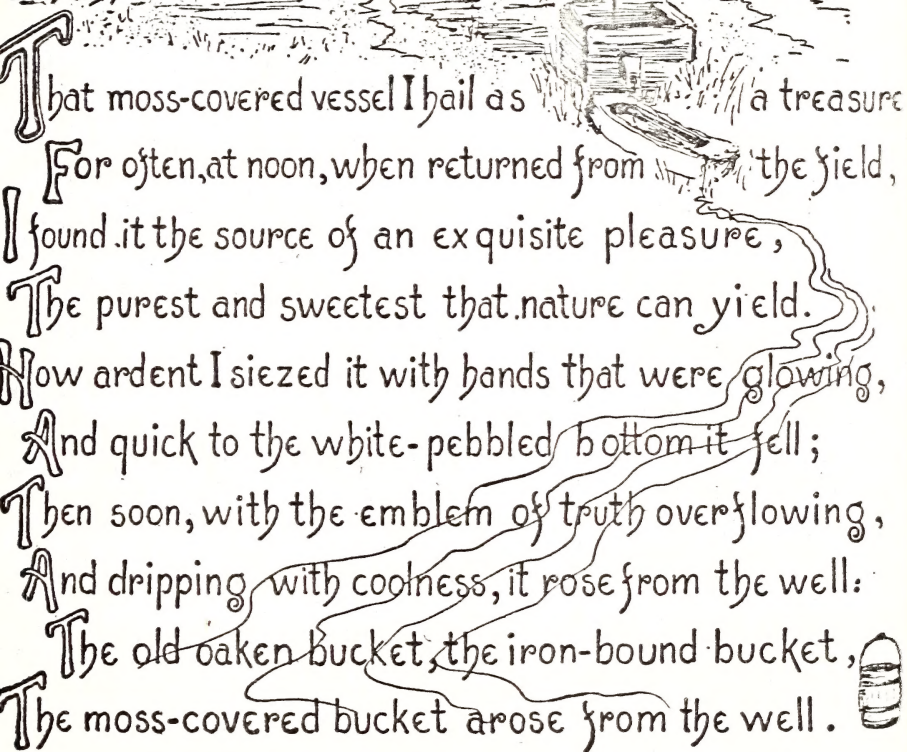 That moss-covered vessel I hail as a treasure
For often, at noon, when returned from the field,
I found it the source of an exquisite pleasure,
The purest and sweetest that nature can yield.
How ardent I siezed it with hands that were glowing,
And quick to the white-pebbled bottom it fell;
Then soon, with the emblem of truth overflowing,
And dripping with coolness, it rose from the well:
The old oaken bucket, the iron-bound bucket,
The moss-covered bucket arose from the well.